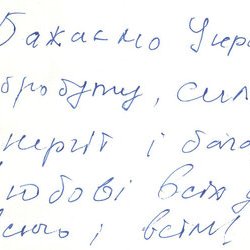 Бажаємо Укра
бробуту, сил
нергії і бага
любові всім у
всього і всім!